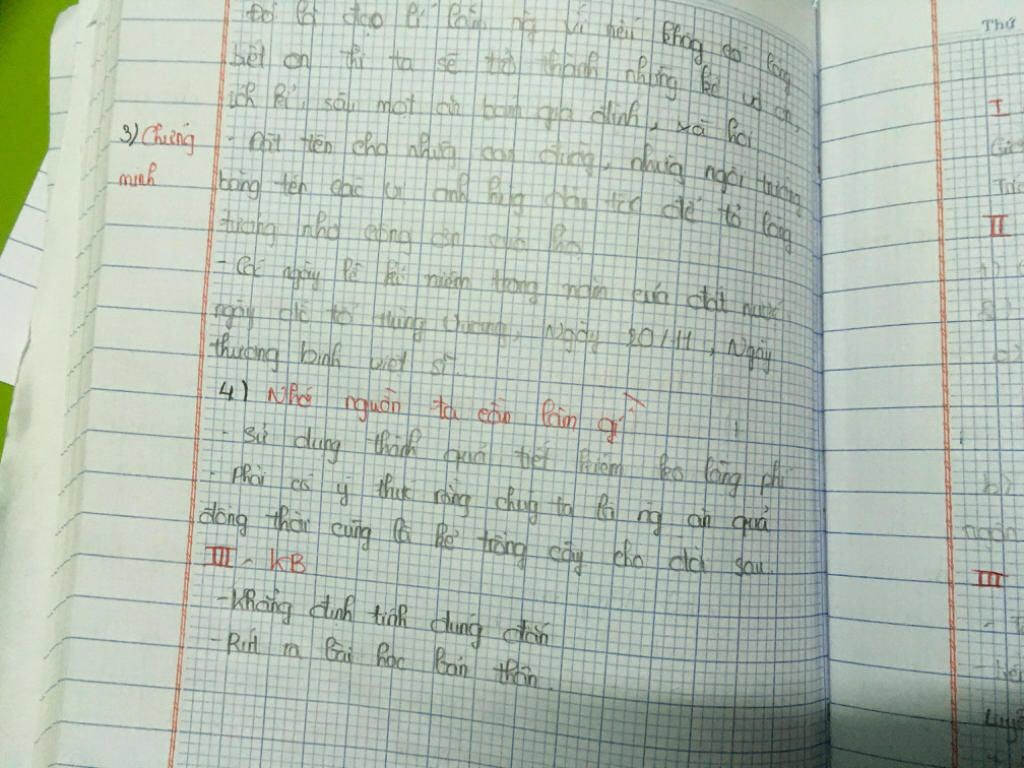 Đó là đạo lí làm ng vì nếu khog có lòng
biết ơn thì ta sẽ trở thành những kẻ vô ơn,
ích kỉ, sâu mọt ăn bám gia đình, xã hội
3) Chứng minh
- Đặt tên cho những con đường, những ngôi trường
bằng tên các vị anh hùg dân tộc để tỏ lòng
tưởng nhớ công ơn của họ
- Các ngày lễ kỉ niệm trong năm của đất nước
ngày giỗ tổ Hùng Vương, Ngày 20/11, Ngày
thương binh liệt sĩ.
4) Nhớ nguồn ta cần làm gì?
- Sử dụng thành quả tiết kiệm ko lãng phí
- Phải có ý thức rằng chúng ta là ng ăn quả
đồng thời cũng là kẻ trồng cây cho đời sau.
III - KB
- Khẳng định tính đúng đắn
- Rút ra bài học bản thân.
Thứ
I
II
III